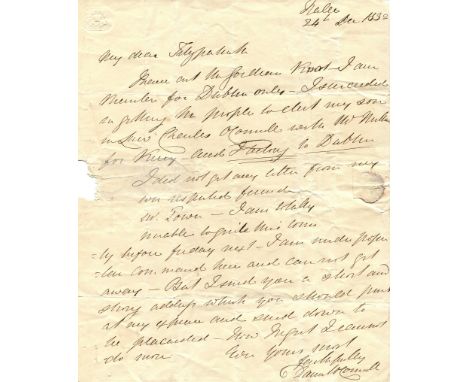 Tralee
24th Dec 1832
My dear Fitzpatrick
I have cut the Gordian Knot – I am
Member for Dublin only – I succeeded
in getting the people to elect my son
in law Charles O'Connell with Mr Mullins
for Kerry – and
to Dublin
I did not get any letter from my
respected friend
Town – I am
unable to quite this
ty before friday next – I am under
command here and can not get
away – But I send you a short and
strong address which you should print
at my expense and send down to
be placarded – How I regret I cannot
do more
Ever Yours most
faithfully
Daniel O'Connell